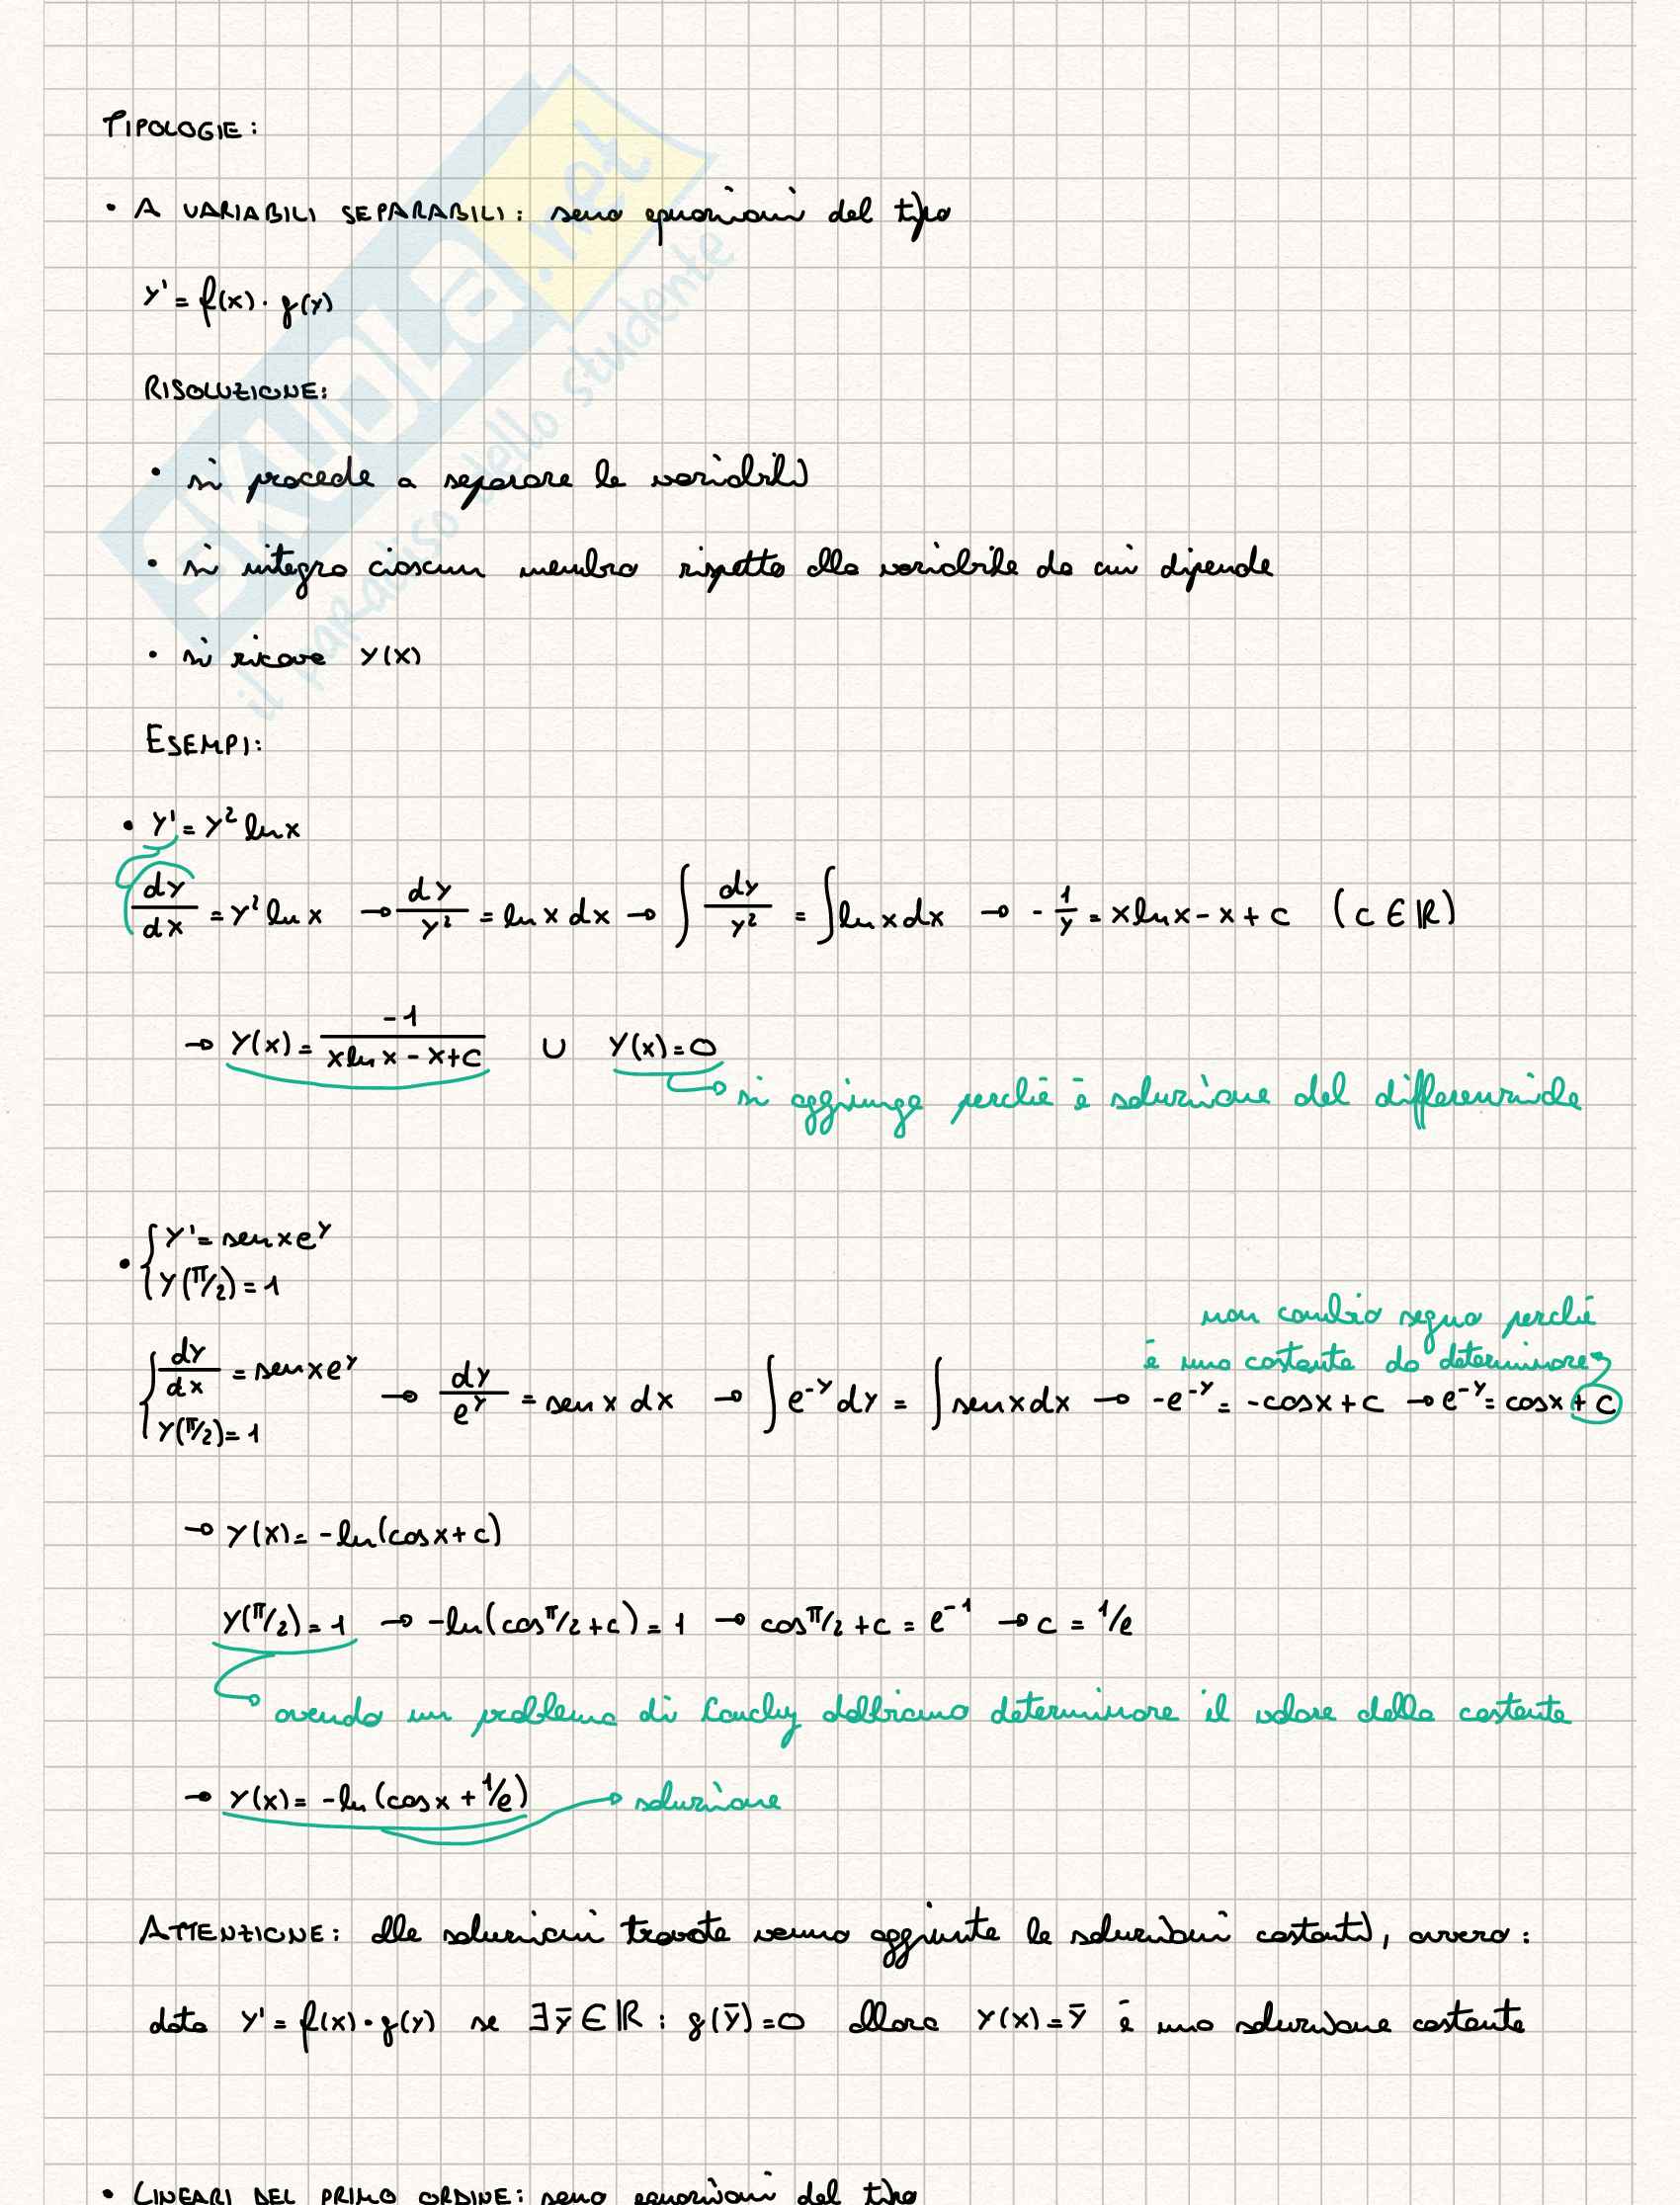 TIPOLOGIE:
• A VARIABILI SEPARABILI: sono equazioni del tipo
y' = f(x) · g(y)
RISOLUZIONE:
• si procede a separare le variabili
• si integra ciascun membro rispetto alla variabile da cui dipende
• si ricava y(x)
ESEMPI:
• y' = y² ln x
dy/dx = y² ln x → dy/y² = ln x dx → ∫ dy/y² = ∫ ln x dx → -1/y = x ln x - x + c (c ∈ ℝ)
→ y(x) = -1/(x ln x - x + c) ∪ y(x) = 0
si aggiunge perché è soluzione del differenziale
• { y' = sen x e^y
y(π/2) = 1
non cambia segno perché
è una costante da determinare
{ dy/dx = sen x e^y → dy/e^y = sen x dx → ∫ e^-y dy = ∫ sen x dx → -e^-y = -cos x + c → e^-y = cos x + c
y(π/2) = 1
→ y(x) = -ln(cos x + c)
y(π/2) = 1 → -ln(cos π/2 + c) = 1 → cos π/2 + c = e^-1 → c = 1/e
avendo un problema di Cauchy dobbiamo determinare il valore della costante
→ y(x) = -ln(cos x + 1/e) → soluzione
ATTENZIONE: alle soluzioni trovate vanno aggiunte le soluzioni costanti, ovvero:
data y' = f(x) · g(y) se ∃ ȳ ∈ ℝ : g(ȳ) = 0 allora y(x) = ȳ è una soluzione costante
• LINEARI DEL PRIMO ORDINE: sono equazioni del tipo
SKUOLa.net
il paradiso dello studente